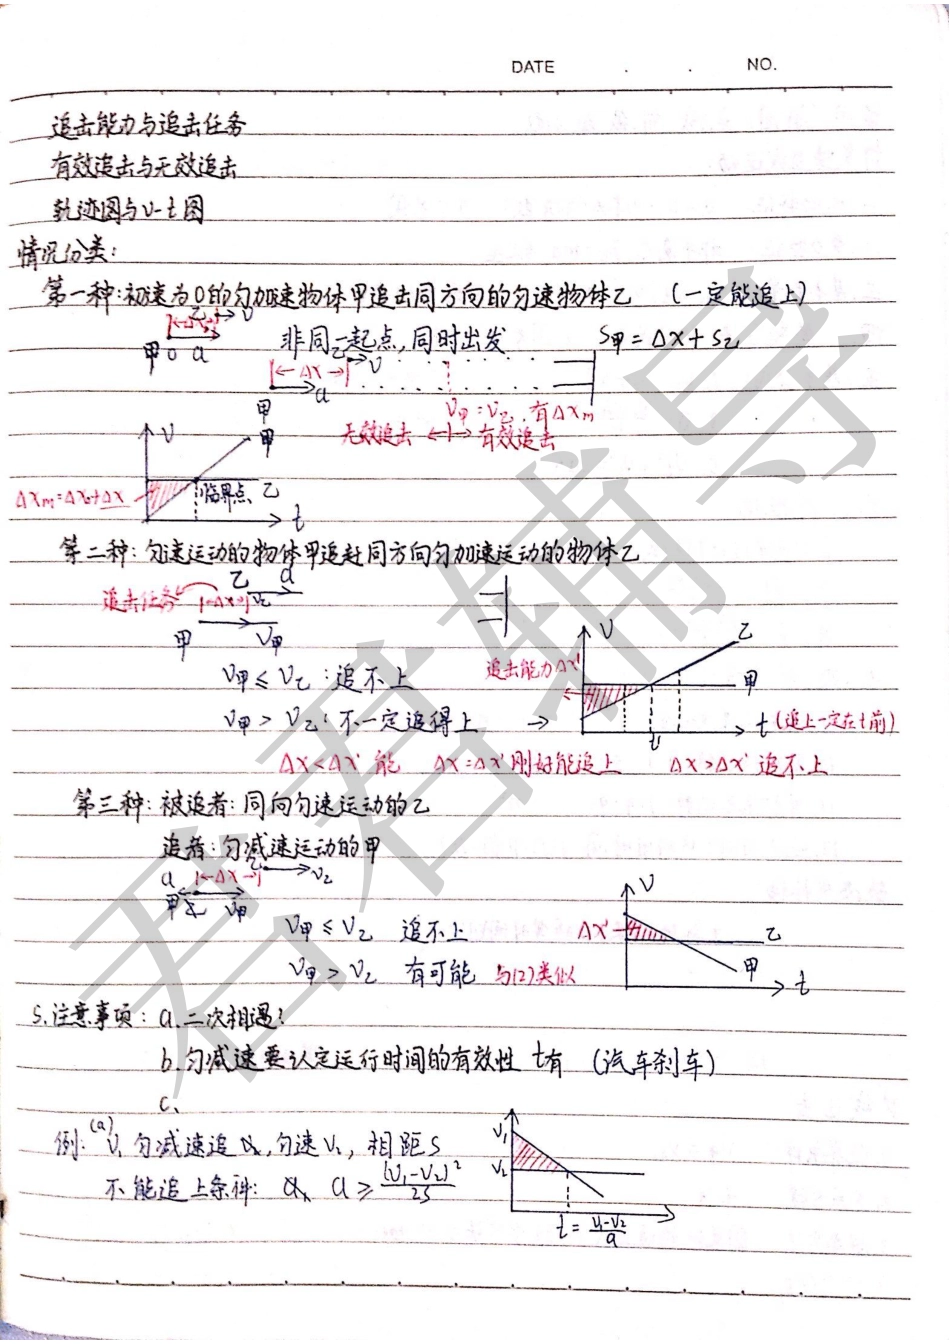 DATE . . NO.
追击能力与追击任务
有效追击与无效追击
轨迹图与v-t图
情况分类:
第一种:初速为0的匀加速物体甲追击同方向的匀速物体乙 (一定能追上)
|←Δx→| 乙 v
甲 0 a
非同一起点,同时出发 S甲=Δx+S乙
|←Δx→| 乙 v
甲 a
V甲=V乙,有Δxm
无效追击 ←|→ 有效追击
v 甲
Δxm=Δx0+Δx 临界点 乙
t
第二种:匀速运动的物体甲追赶同方向匀加速运动的物体乙
乙 a
追击任务 |←Δx→| v乙
甲 V甲
V 乙
追击能力Δx' 甲
V甲≤V乙:追不上
V甲>V乙:不一定追得上 → t' t(追上一定在t前)
Δx<Δx' 能 Δx=Δx'刚好能追上 Δx>Δx' 追不上
第三种:被追者:同向匀速运动的乙
追者:匀减速运动的甲
a |←Δx→| 乙 V乙
甲 V甲
V甲≤V乙 追不上
V甲>V乙 有可能 与(2)类似
V
Δx' 乙
甲 t
5.注意事项: a.二次相遇?
b.匀减速要认定运行时间的有效性 t有 (汽车刹车)
c.
例:(a) V1匀减速追 匀速V2,相距S
不能追上条件: a≥(V1-V2)²/2S
V1
V2
t=(V1-V2)/a
君君辅导